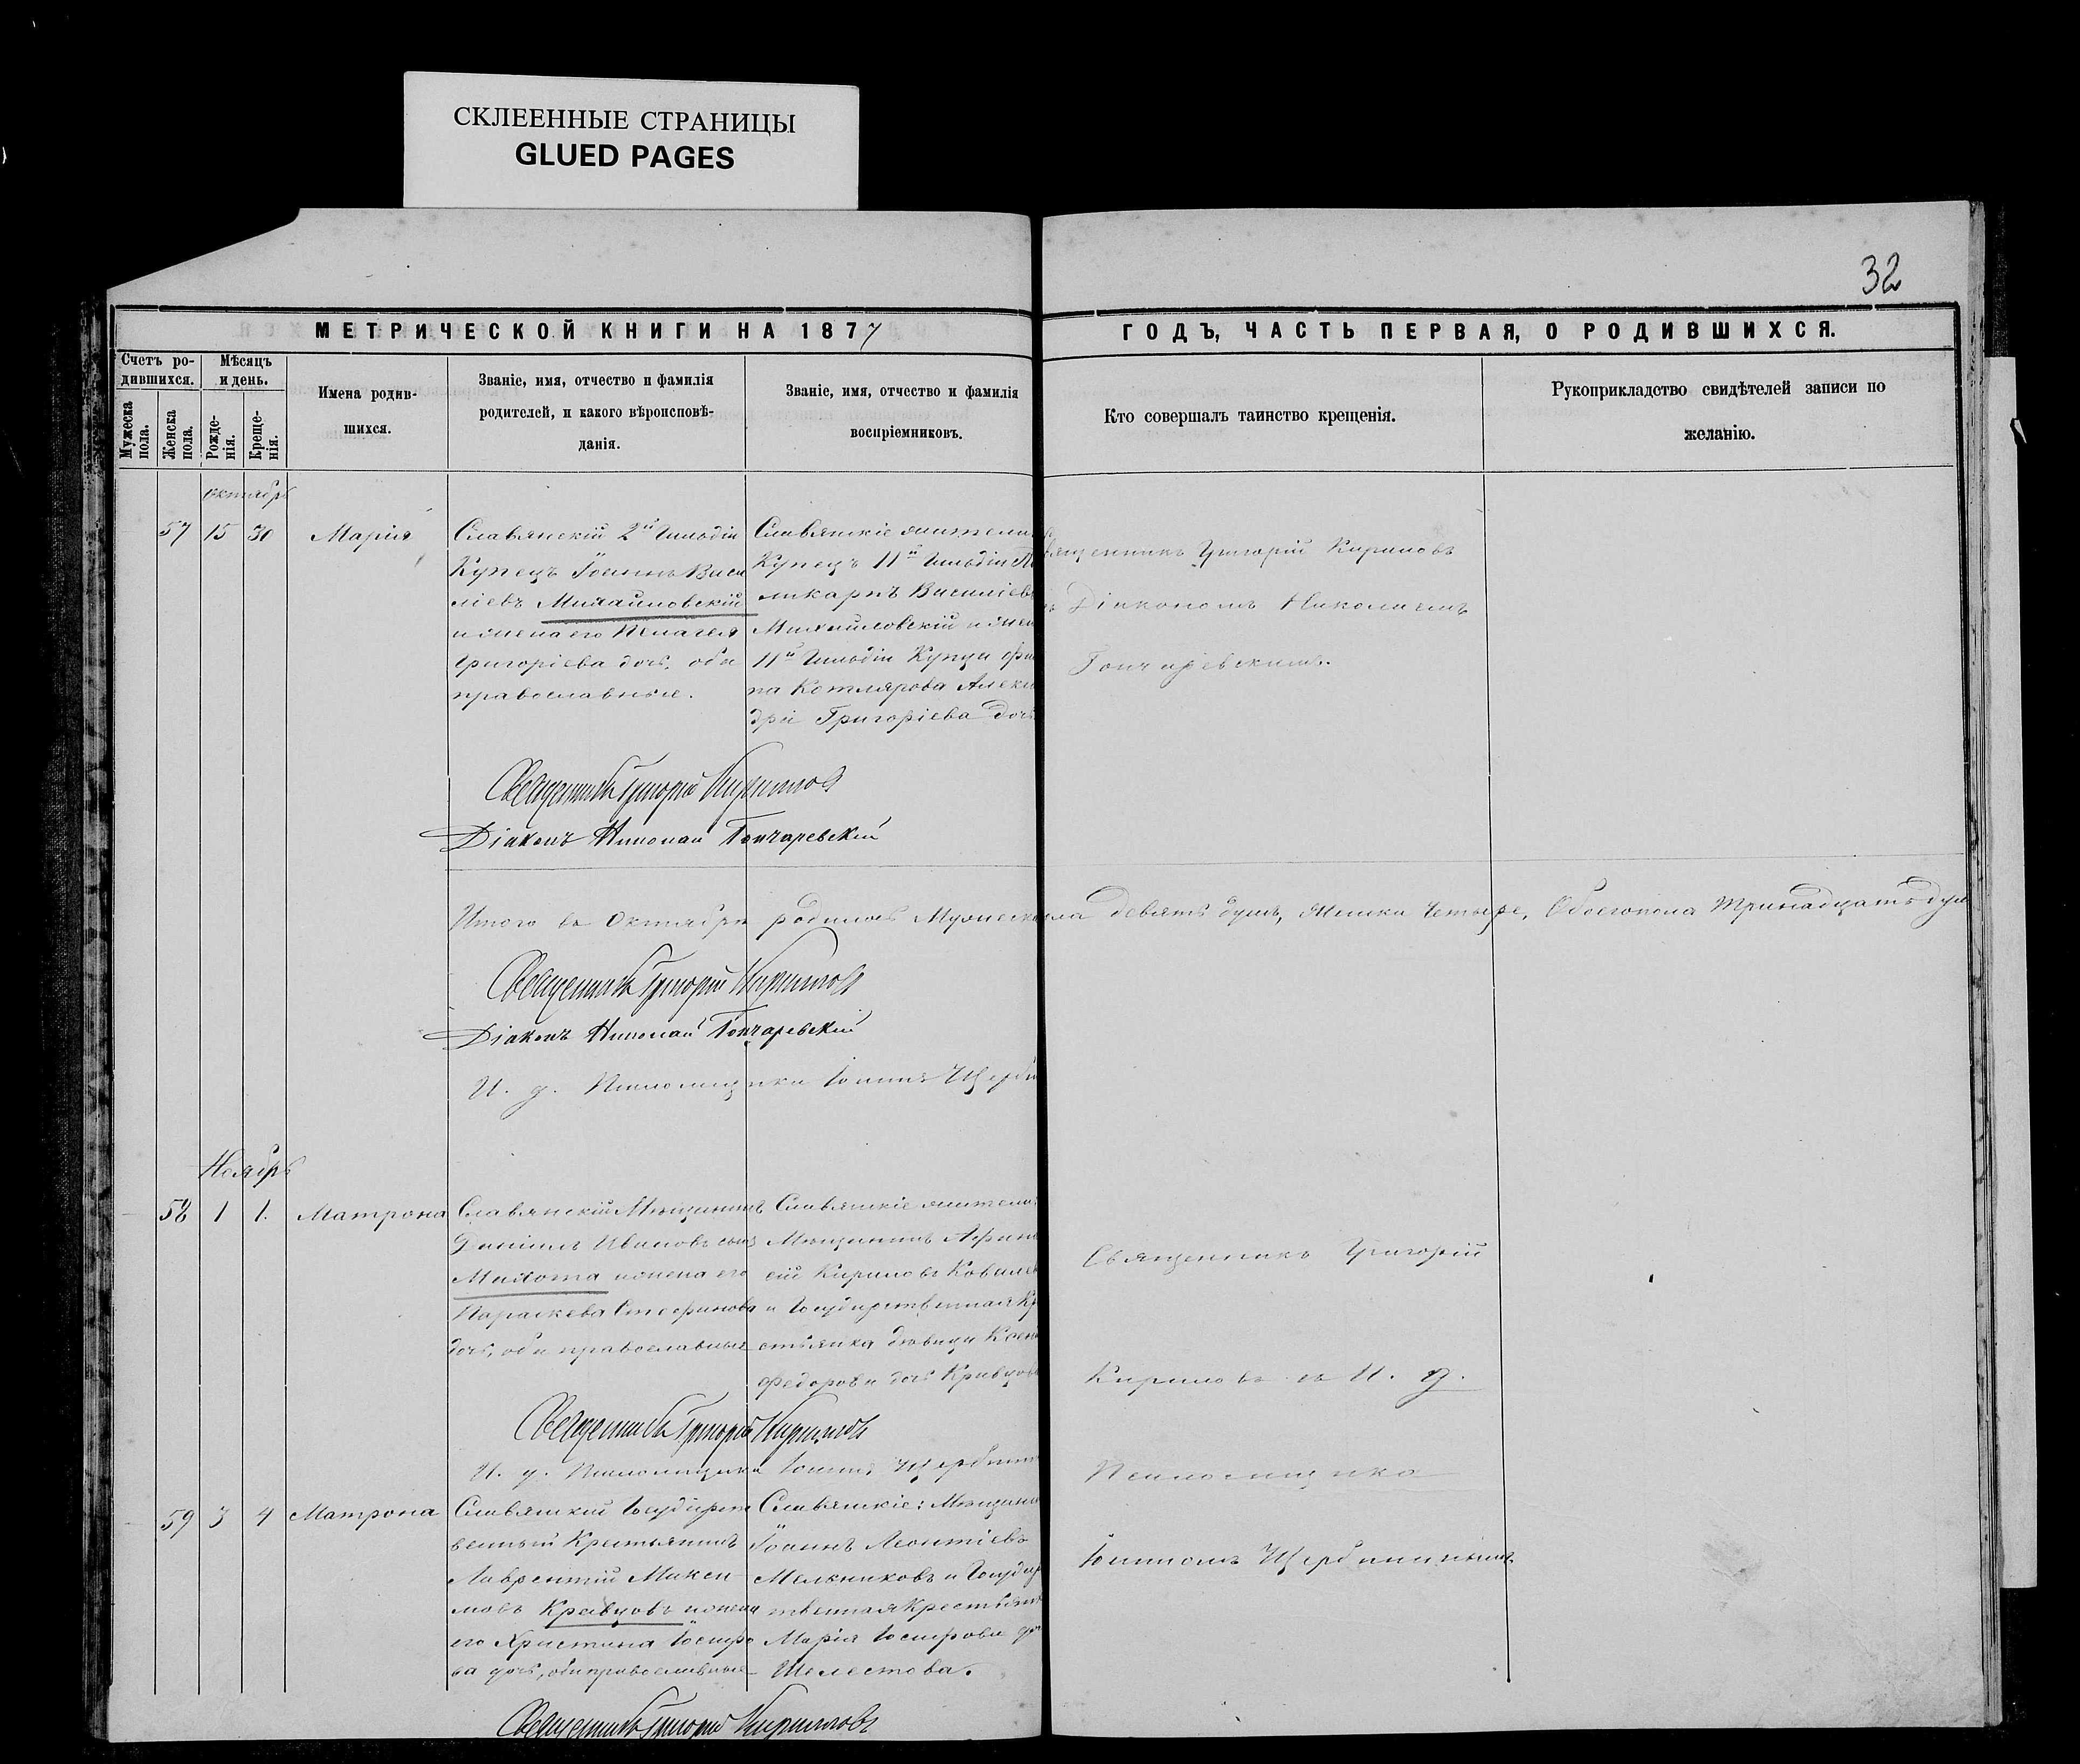 СКЛЕЕННЫЕ СТРАНИЦЫ
GLUED PAGES
32
МЕТРИЧЕСКОЙ КНИГИ НА 1877
ГОДЪ, ЧАСТЬ ПЕРВАЯ, О РОДИВШИХСЯ.
Счетъ ро-
дившихся.
Мужеска
пола.
Женска
пола.
Мѣсяцъ
и день.
Рожде-
нія.
Креще-
нія.
Имена родив-
шихся.
Званіе, имя, отчество и фамилія
родителей, и какого вѣроисповѣ-
данія.
Званіе, имя, отчество и фамилія
воспріемниковъ.
Кто совершалъ таинство крещенія.
Рукоприкладство свидѣтелей записи по
желанію.
октябрь
57 15 30 Марія
Славянскій 2й Гильдіи
Купецъ Іоаннъ Васи
ліевъ Михайловскій
и жена его Пелагея
Григоріева дочь, оба
православные.
Славянскіе жители
Купецъ 11й Гильдіи
ликарпъ Василіевъ
Михайловскій и
11й Гильдіи Купца
па Котлярова
дра Григоріева дочь
Священникъ Григорій Кириловъ
Діакономъ Николаемъ
Гончаревскимъ.
Священникъ Григорій Кириловъ
Діаконъ Николай Гончаревскій
Итого въ Октябрѣ родилось Мужеска пола девять душъ, Женска Четыре, Обоего пола Тринадцать душ
Священникъ Григорій Кириловъ
Діаконъ Николай Гончаревскій
И. д. Псаломщика Іоаннъ
Ноябрь
58 1 1. Матрона
Славянскій Мѣщанинъ
Даніилъ Ивановъ сынъ
Махота и жена его
Параскева Стефанова
дочь, оба православные
Славянскіе жители:
Мѣщанинъ Афана
сій Кириловъ
и Государственная Кр
стьянка дѣвица
Федорова дочь Кравцова
Священникъ Григорій
Кириловъ съ И. д.
Псаломщика
Іоанномъ Щербининымъ.
Священникъ Григорій Кириловъ
И. д. Псаломщика Іоаннъ Щербинин
59 3 4 Матрона
Славянскій Государст
венный Крестьянинъ
Лаврентій Макси
мовъ Кравцовъ и жена
его Христина Іосифо
ва дочь, оба православные
Славянскіе: Мѣщанин
Іоаннъ Леонтіевъ
Мельниковъ и Государ
ственная Крестьянк
Марія Іосифова до
Шелестова.
Священникъ Григорій Кириловъ